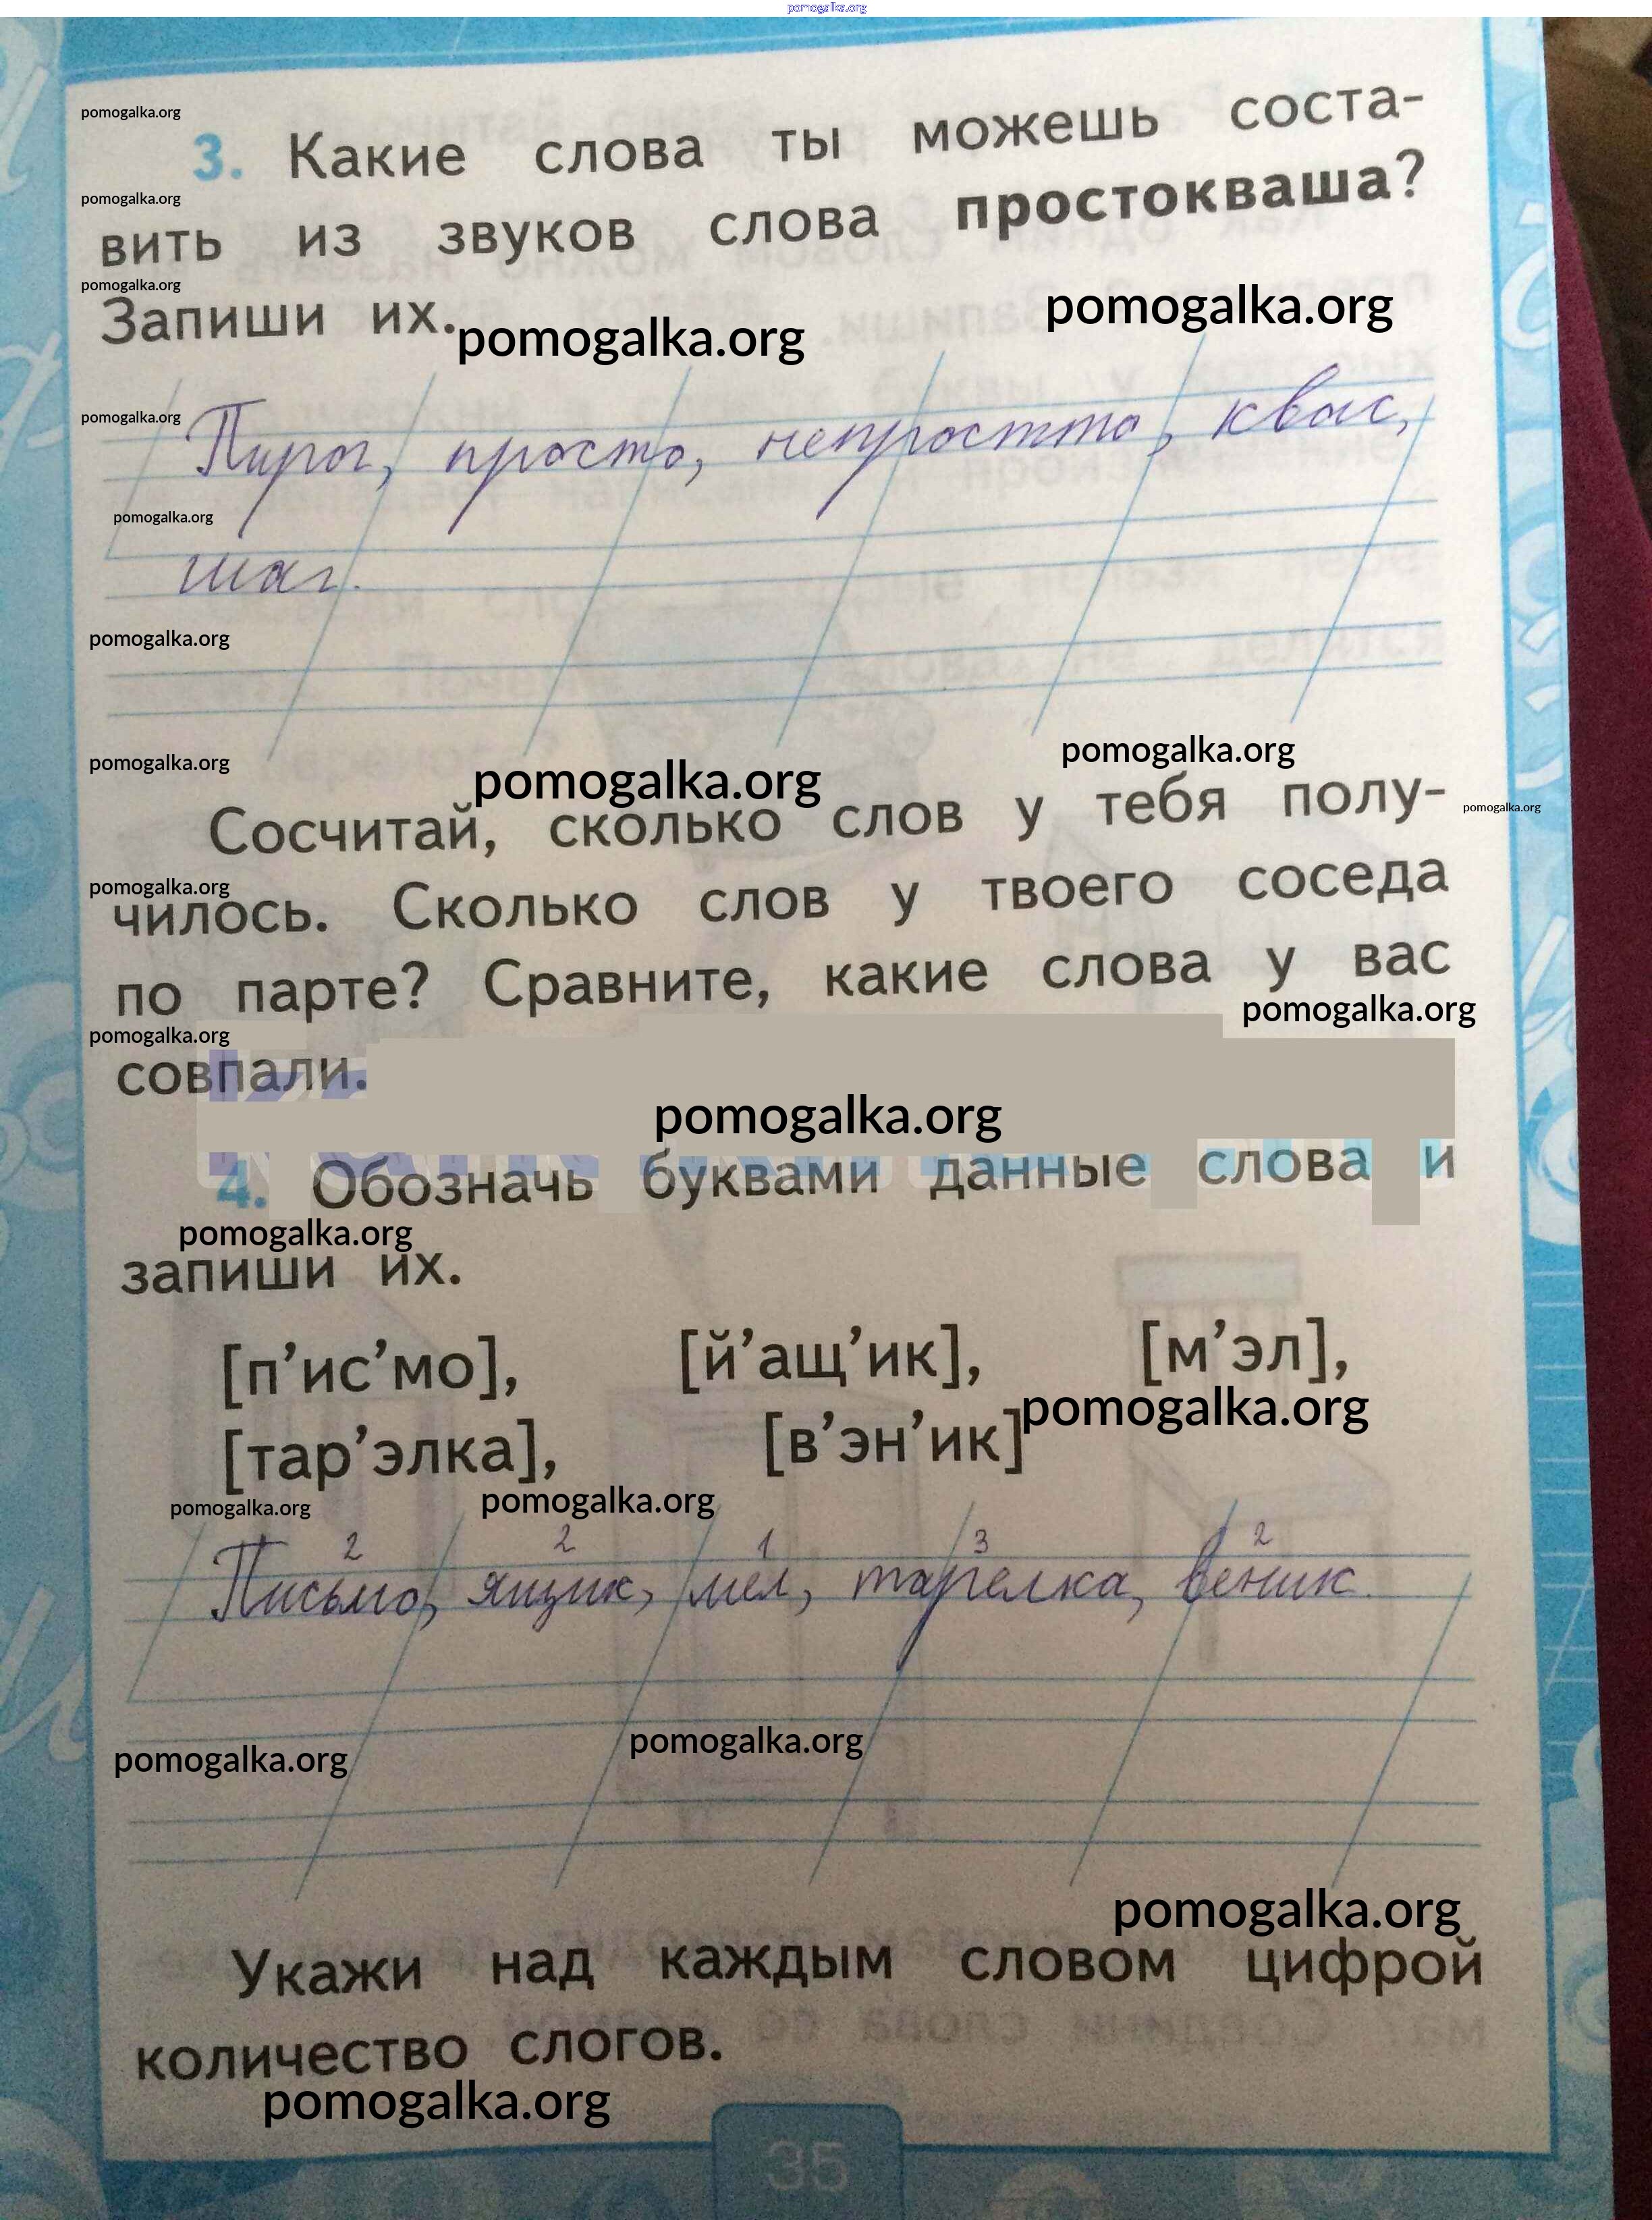 pomogalka.org
pomogalka.org
3. Какие слова ты можешь соста-
pomogalka.org
вить из звуков слова простокваша?
pomogalka.org
Запиши их.
pomogalka.org
pomogalka.org
pomogalka.org
Пирог, просто, непростто, квас,
pomogalka.org
шаг.
pomogalka.org
pomogalka.org
pomogalka.org
pomogalka.org
Сосчитай, сколько слов у тебя полу-
pomogalka.org
pomogalka.org
чилось. Сколько слов у твоего соседа
по парте? Сравните, какие слова у вас
pomogalka.org
pomogalka.org
совпали.
pomogalka.org
4. Обозначь буквами данные слова и
pomogalka.org
запиши их.
[п’ис’мо], [й’ащ’ик], [м’эл],
pomogalka.org
[тар’элка], [в’эн’ик]
pomogalka.org
pomogalka.org
2 2 1 3 2
Письмо, ящик, мел, тарелка, веник.
pomogalka.org
pomogalka.org
pomogalka.org
Укажи над каждым словом цифрой
количество слогов.
pomogalka.org
35